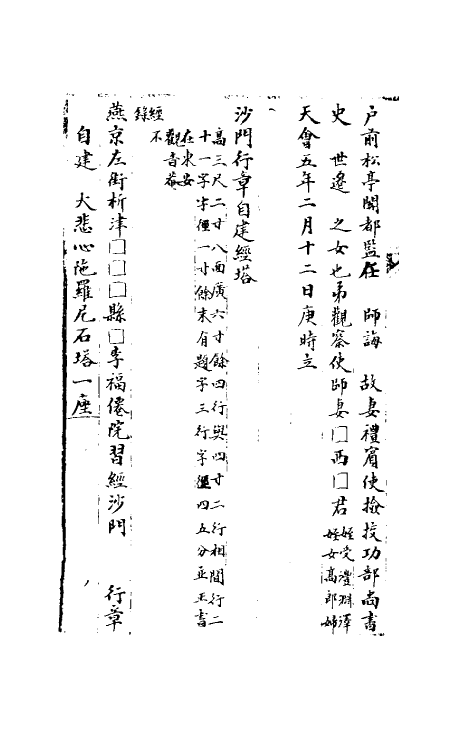 戶前松亭關都監任　師誨　故妻禮賓使撿挍功部尚書
史　世邊　之女也弟觀察使師妻□西□君姪受澧州澤
姪女高郎婦
天會五年二月十二日庚時立
沙門行章自建經塔
高三尺二寸八面廣六寸餘四行與四寸二行相間行二
十一字字徑一寸餘末有題字三行字徑四五分並正書
在永安
觀音菴
經不
錄
燕京左街析津□□□縣□李福僊院習經沙門　行章
自建　大悲心陁羅尼石塔一座